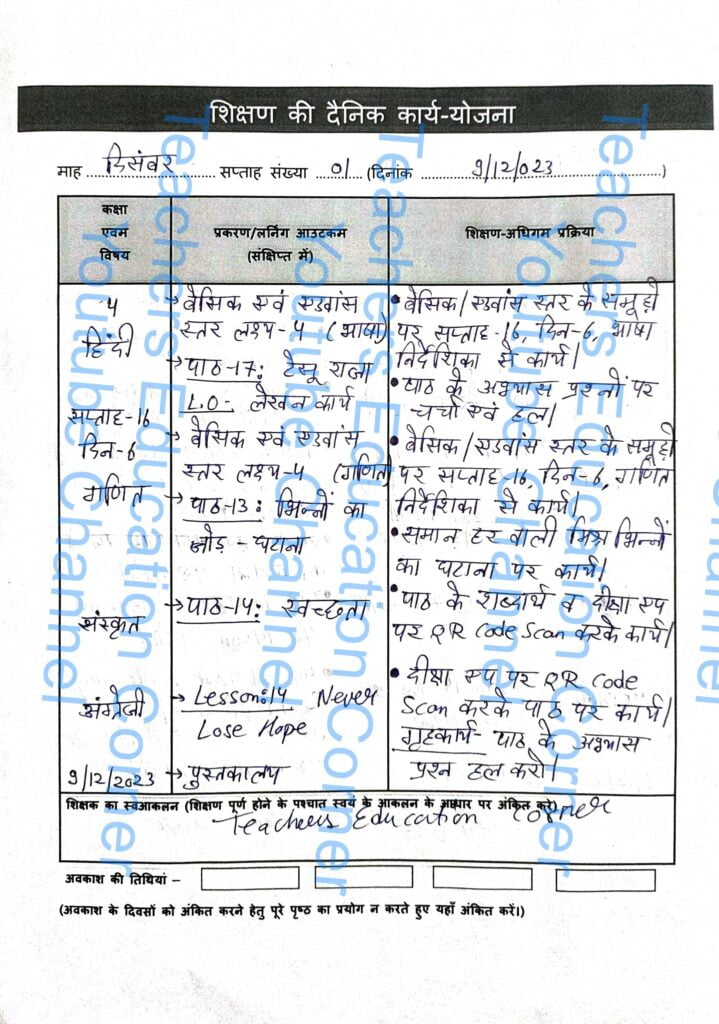 शिक्षण की दैनिक कार्य-योजना
माह डिसंबर सप्ताह संख्या 01 (दिनांक 9/12/2023)
कक्षा एवम विषय
प्रकरण/लर्निग आउटकम (संक्षिप्त में)
शिक्षण-अधिगम प्रक्रिया
4
हिंदी
सप्ताह-16
दिन-6
→ बेसिक एवं एडवांस
स्तर लक्ष्य-4 (भाषा)
→ पाठ-17: टेसू राजा
L.O- लेखन कार्य
• बेसिक/एडवांस स्तर के समूहों
पर सप्ताह-16, दिन-6, भाषा
निर्देशिका से कार्य।
• पाठ के अभ्यास प्रश्नों पर
चर्चा एवं हल।
गणित
→ बेसिक एवं एडवांस
स्तर लक्ष्य-4 (गणित)
→ पाठ-13: भिन्नों का
जोड़ - घटाना
• बेसिक/एडवांस स्तर के समूहों
पर सप्ताह-16, दिन-6, गणित
निर्देशिका से कार्य।
• समान हर वाली मिश्र भिन्नों
का घटाना पर कार्य।
संस्कृत
→ पाठ-14: स्वच्छता
• पाठ के शब्दार्थ व दीक्षा एप
पर QR Code Scan करके कार्य।
अंग्रेजी
→ Lesson:14 Never
Lose Hope
• दीक्षा एप पर QR Code
Scan करके पाठ पर कार्य।
गृहकार्य- पाठ के अभ्यास
प्रश्न हल करो।
9/12/2023 → पुस्तकालय
शिक्षक का स्वआकलन (शिक्षण पूर्ण होने के पश्चात स्वयं के आकलन के आधार पर अंकित करे)
Teachers Education Corner
अवकाश की तिथियां –
(अवकाश के दिवसों को अंकित करने हेतु पूरे पृष्ठ का प्रयोग न करते हुए यहाँ अंकित करें।)
Teachers Education Corner
Youtube Channel
Teachers Education Corner
Youtube Channel
Teachers Education Corner
Youtube Channel